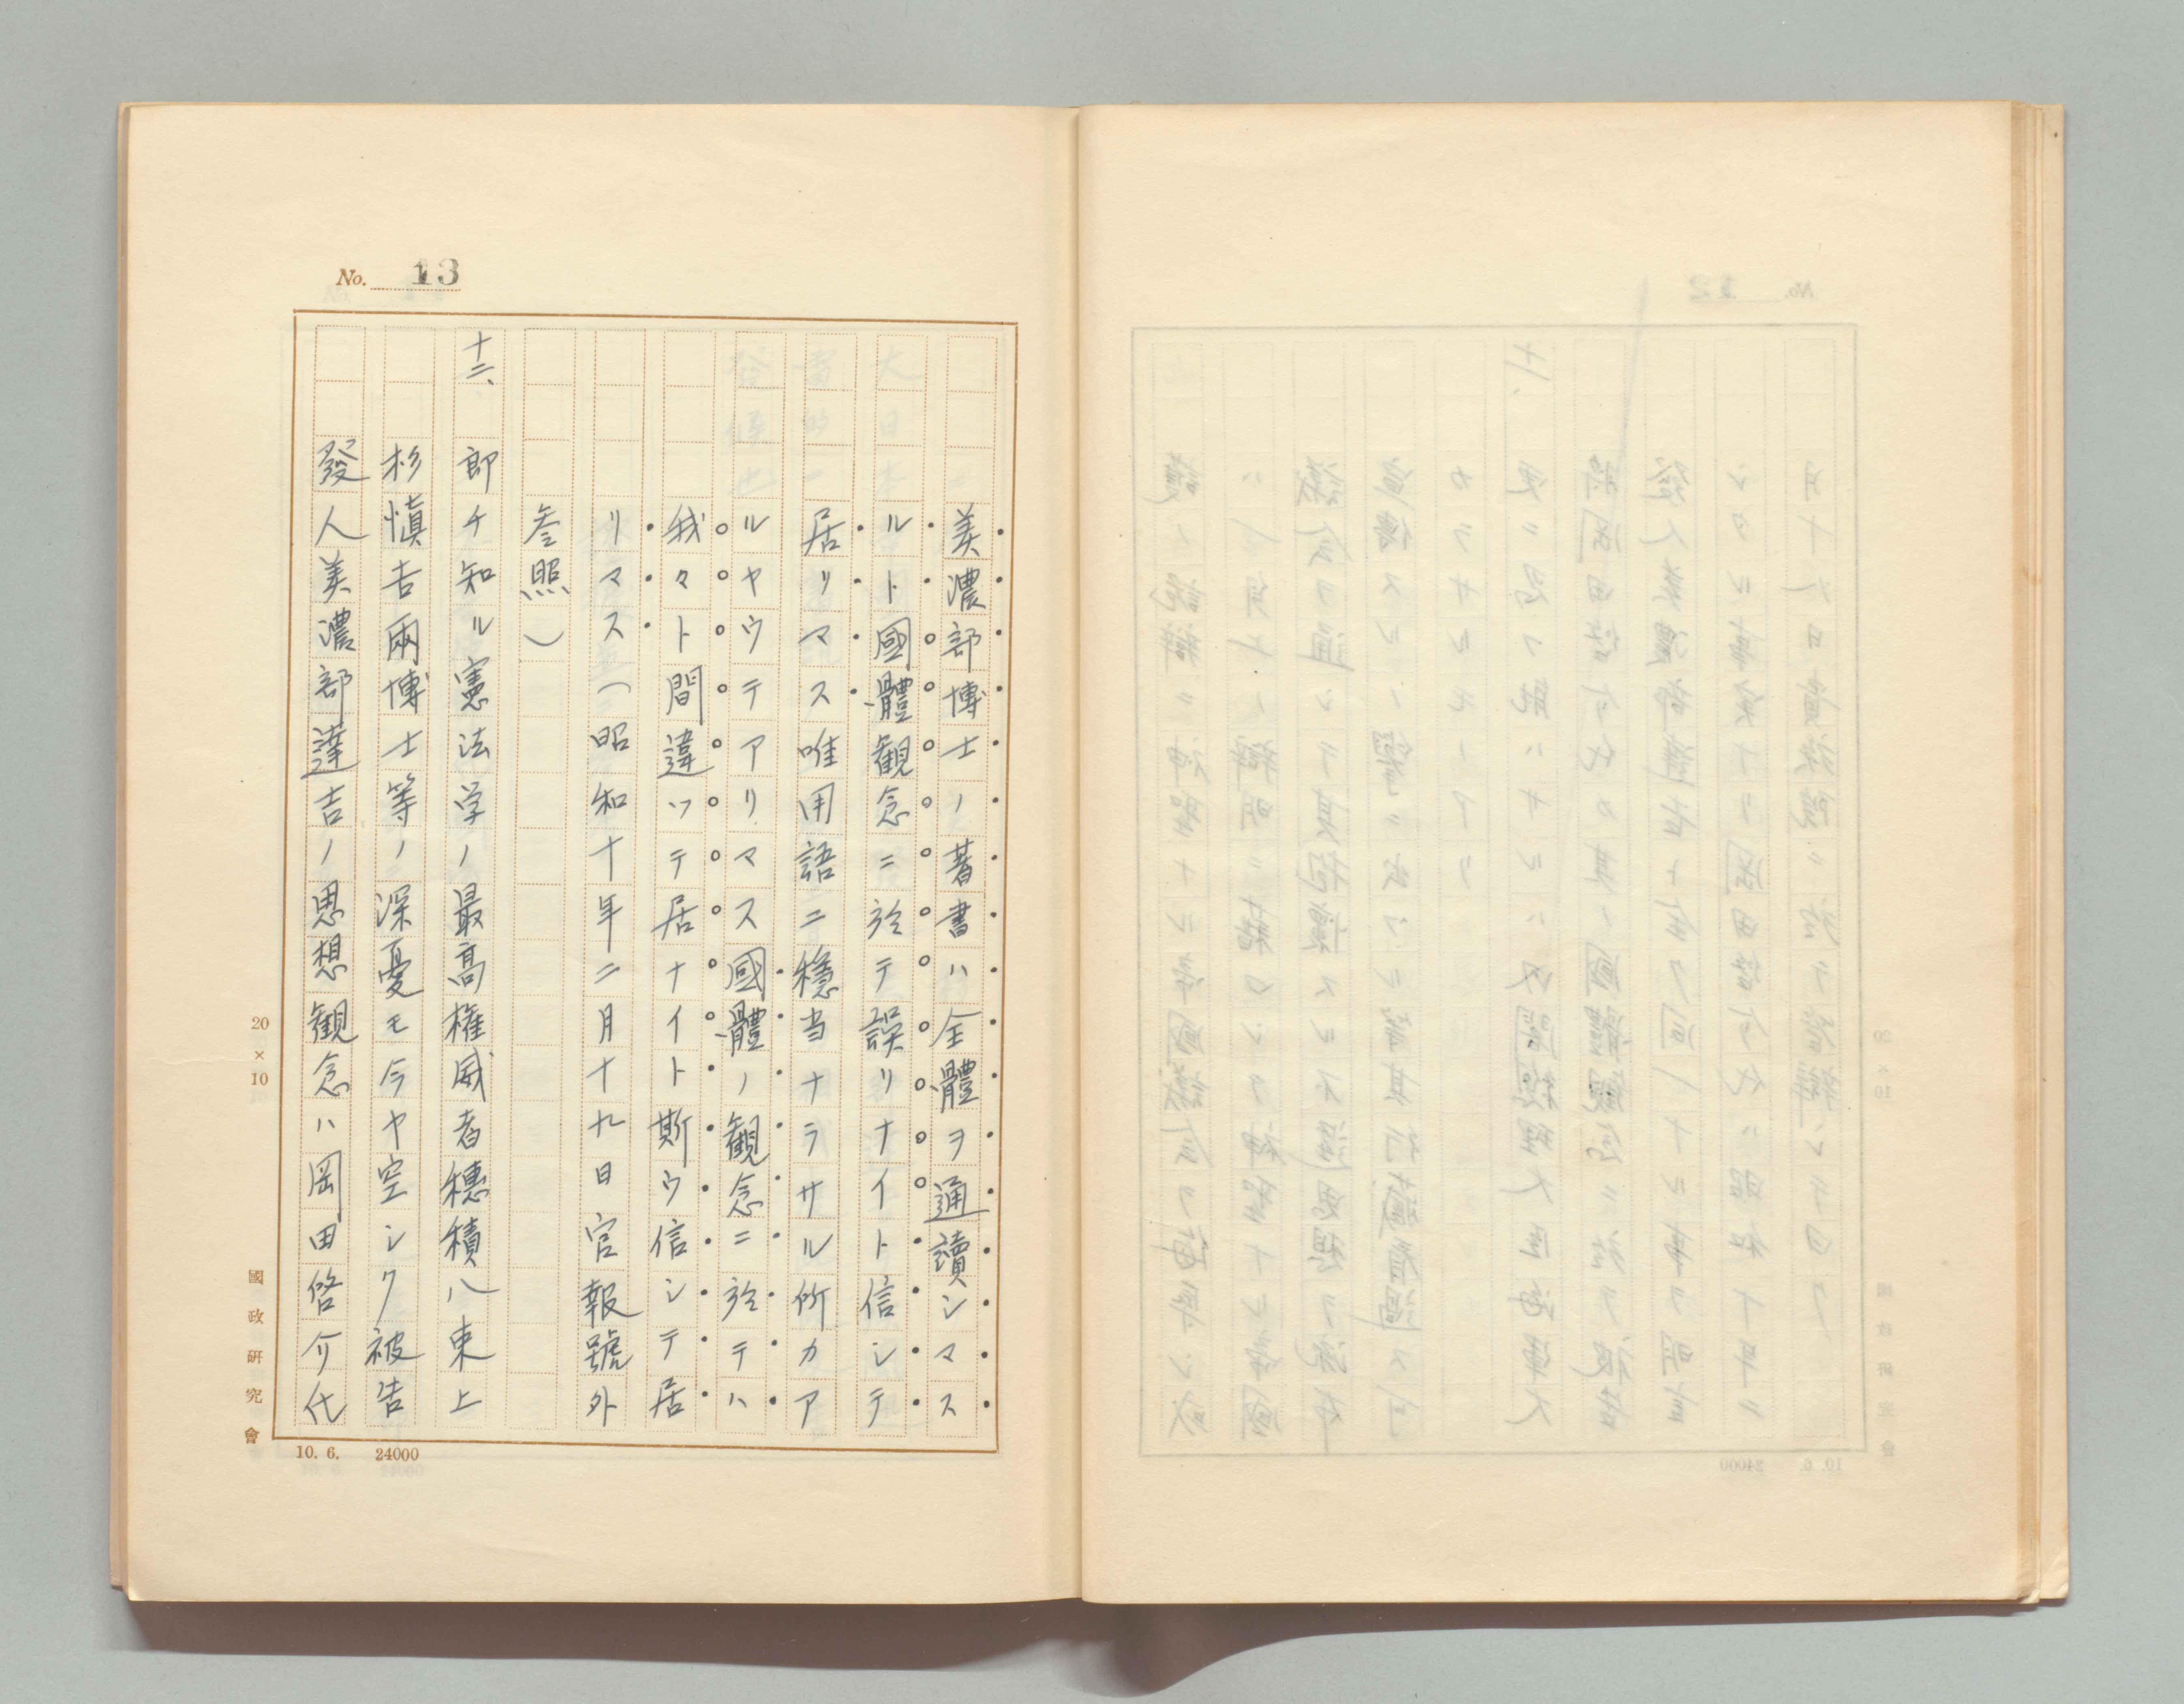 No. 13
美濃部博士ノ著書ハ全體ヲ通讀シマス
ルト國體観念ニ於テ誤リナイト信シテ
居リマス唯用語ニ穏当ナラサル所カア
ルヤウテアリマス國體ノ観念ニ於テハ
我々ト間違ツテ居ナイト斯ウ信シテ居
リマス（昭和十年二月十九日官報號外
参照）
十二、郎チ知ル憲法学ノ最高権威者穗積八束上
杉慎吉兩博士等ノ深憂モ今ヤ空シク被告
發人美濃部達吉ノ思想観念ハ岡田啓介代
20×10
國政研究會
10. 6. 24000